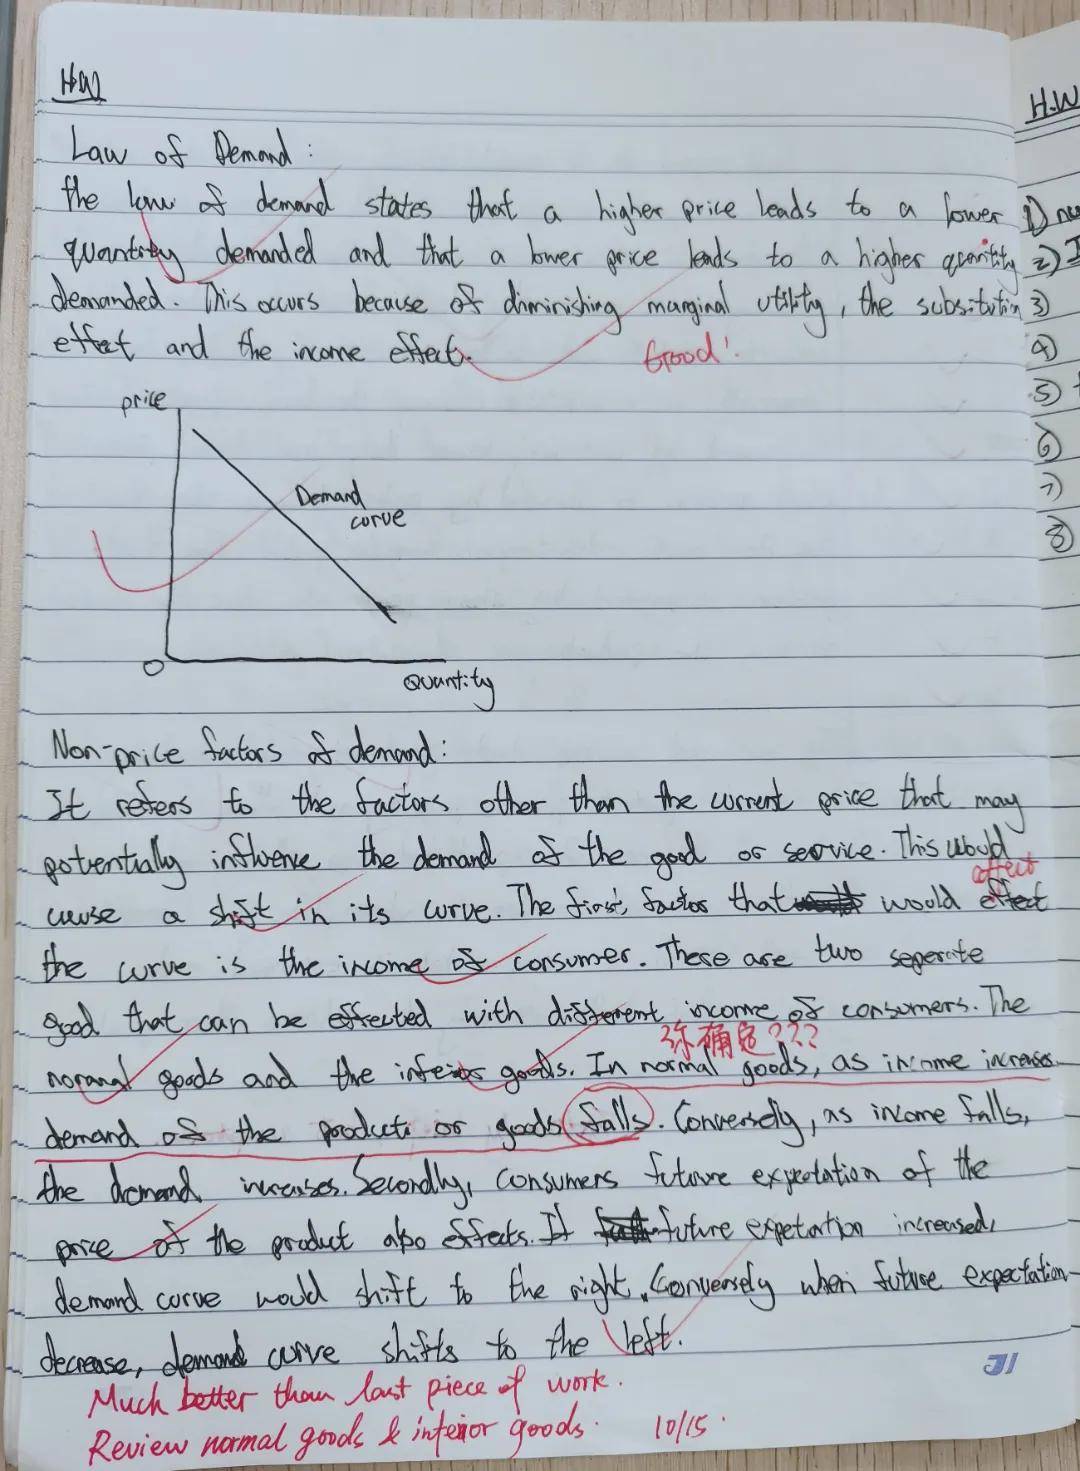 H.W
Law of Demand :
the law of demand states that a higher price leads to a lower
quantity demanded and that a lower price leads to a higher quantity
demanded. This occurs because of diminishing marginal utility, the substitution
effect and the income effect.
Good!
price
Demand
curve
O
Quantity
Non-price factors of demand:
It refers to the factors other than the current price that may
potentially influence the demand of the good or service. This would
affect
cause a shift in its curve. The first, factor that would effect
the curve is the income of consumer. These are two seperate
good that can be effected with different income of consumers. The
你确定???
normal goods and the inferior goods. In normal goods, as income increases
demand of the product or goods falls. Conversely, as income falls,
the demand increases. Secondly, consumers future expectation of the
price of the product also effects. If future expetation increased,
demand curve would shift to the right. Conversely when future expectation
decrease, demand curve shifts to the left.
Much better than last piece of work.
Review normal goods & inferior goods. 10/15.
H.W
1)
2) I
3)
4)
5)
6)
7)
8)